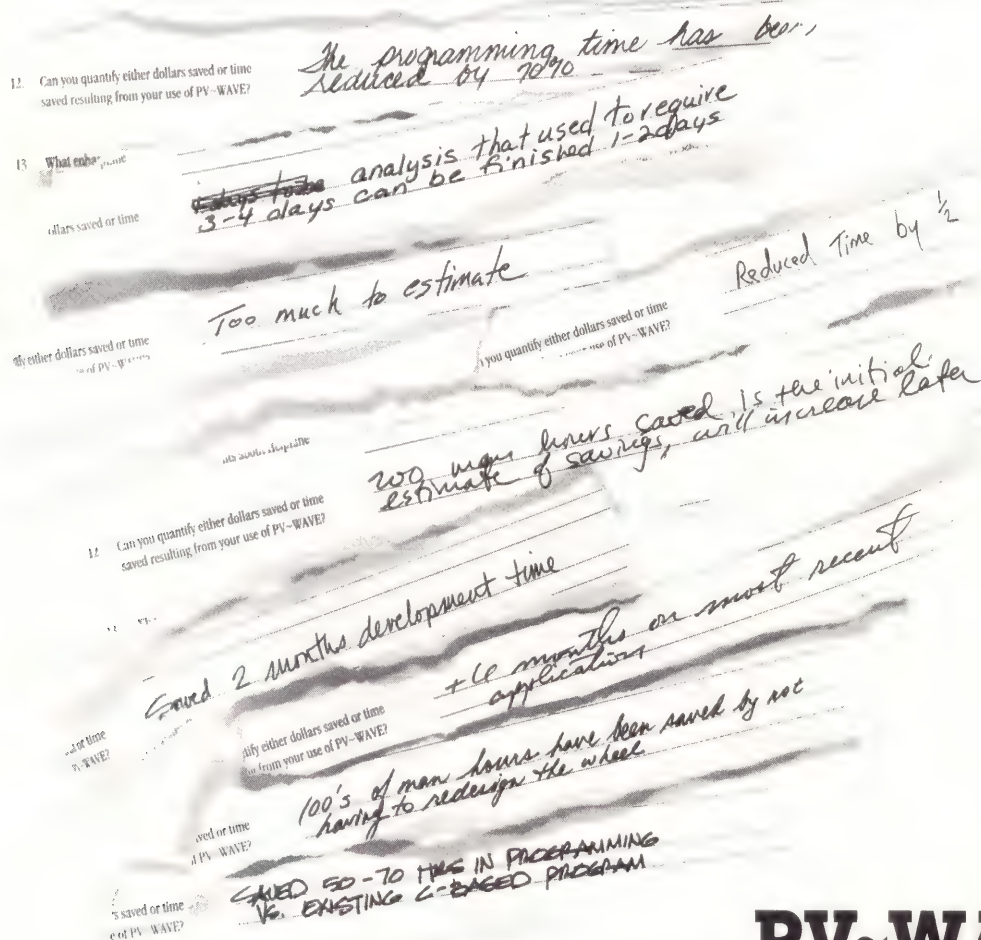 12. Can you quantify either dollars saved or time
saved resulting from your use of PV~WAVE?
The programming time has been
reduced by 70%
13 What
analysis that used to require
3-4 days can be finished 1-2 days
ollars saved or time
Too much to estimate
Reduced Time by ½
ify either dollars saved or time
of PV~
you quantify either dollars saved or time
use of PV~WAVE?
200 man hours saved is the initial
estimate of savings, will increase later
12 Can you quantify either dollars saved or time
saved resulting from your use of PV~WAVE?
Saved 2 months development time
months on most recent
application
or time
WAVE?
tify either dollars saved or time
from your use of PV~WAVE?
100's of man hours have been saved by not
having to redesign the wheel
ved or time
PV~WAVE?
SAVED 50-70 HRS IN PROGRAMMING
VS. EXISTING C-BASED PROGRAM
's saved or time
e of PV~WAVE?